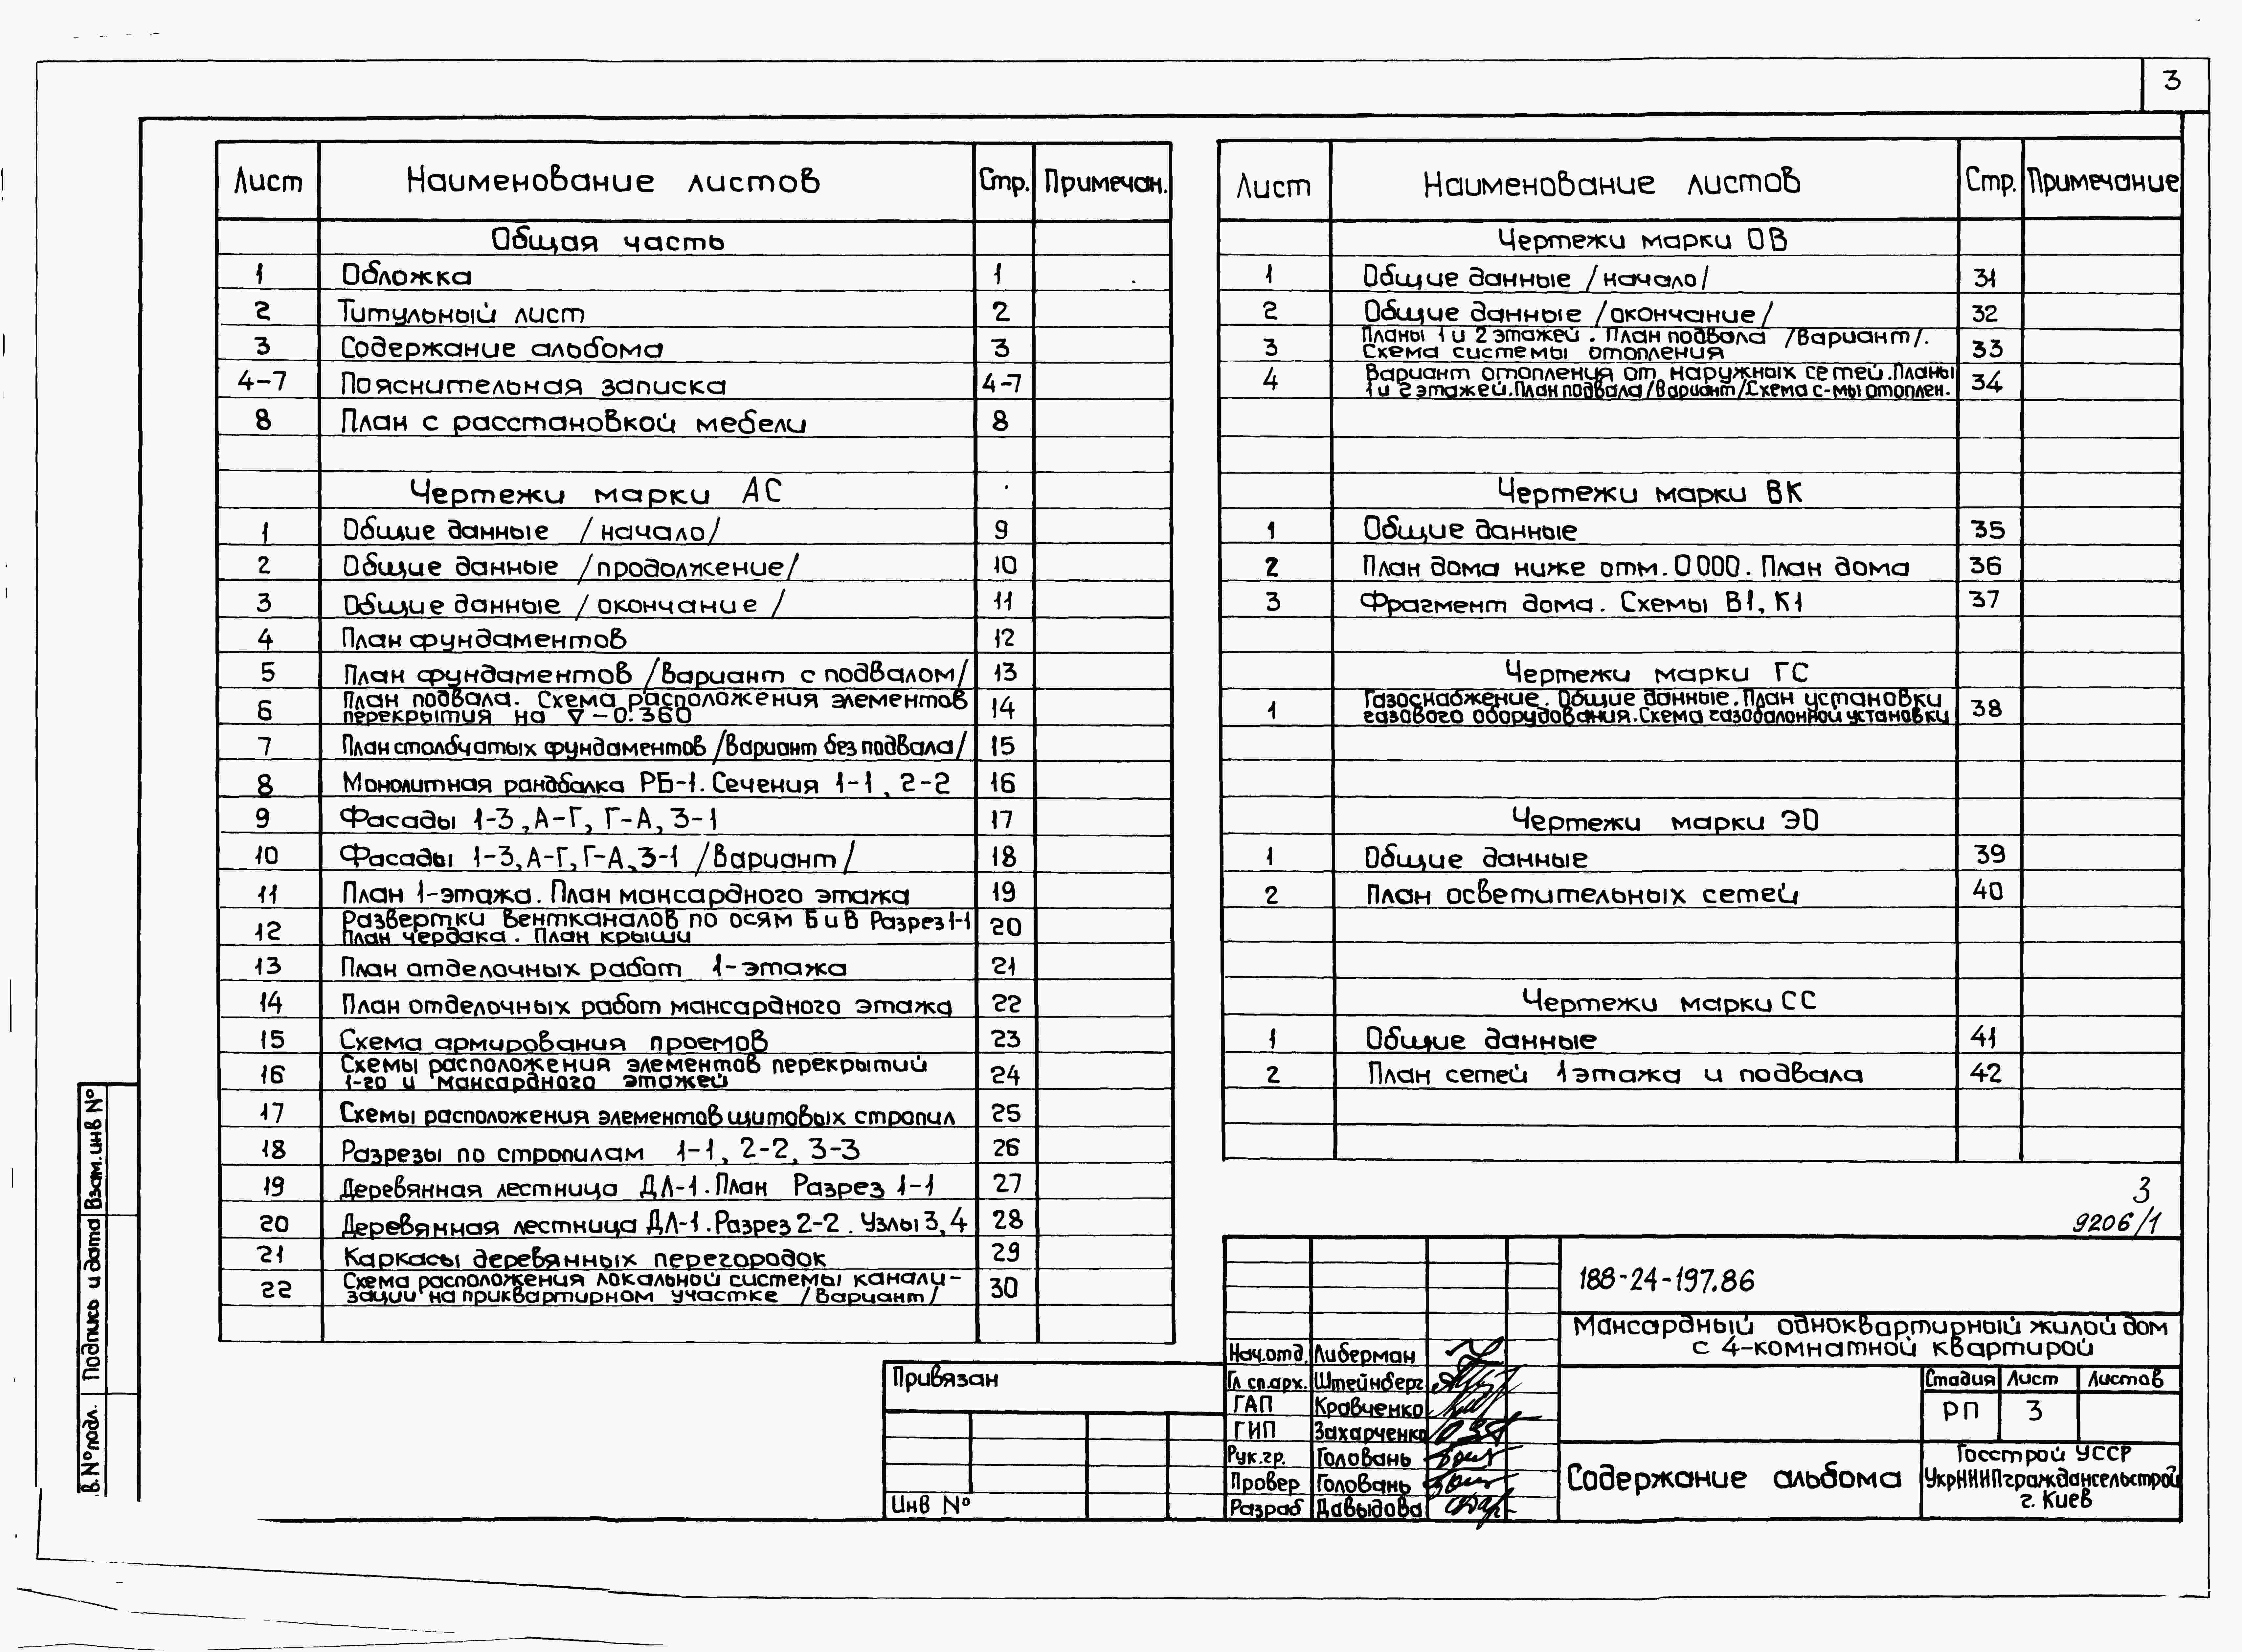 3
Лист Наименование листов Стр. Примечан.
Общая часть
1 Обложка 1
2 Титульный лист 2
3 Содержание альбома 3
4-7 Пояснительная записка 4-7
8 План с расстановкой мебели 8
Чертежи марки АС
1 Общие данные /начало/ 9
2 Общие данные /продолжение/ 10
3 Общие данные /окончание/ 11
4 План фундаментов 12
5 План фундаментов /Вариант с подвалом/ 13
6 План подвала. Схема расположения элементов 14
перекрытия на ∇ -0.360
7 План столбчатых фундаментов /Вариант без подвала/ 15
8 Монолитная рандбалка РБ-1. Сечения 1-1, 2-2 16
9 Фасады 1-3, А-Г, Г-А, 3-1 17
10 Фасады 1-3, А-Г, Г-А, 3-1 /Вариант/ 18
11 План 1-этажа. План мансардного этажа 19
12 Развертки вентканалов по осям Б и В Разрез 1-1 20
План чердака. План крыши
13 План отделочных работ 1-этажа 21
14 План отделочных работ мансардного этажа 22
15 Схема армирования проемов 23
16 Схемы расположения элементов перекрытий 24
1-го и мансардного этажей
17 Схемы расположения элементов щитовых стропил 25
18 Разрезы по стропилам 1-1, 2-2, 3-3 26
19 Деревянная лестница ДЛ-1. План Разрез 1-1 27
20 Деревянная лестница ДЛ-1. Разрез 2-2. Узлы 3,4 28
21 Каркасы деревянных перегородок 29
22 Схема расположения локальной системы канали- 30
зации на приквартирном участке /Вариант/
Лист Наименование листов Стр. Примечание
Чертежи марки ОВ
1 Общие данные /начало/ 31
2 Общие данные /окончание/ 32
3 Планы 1 и 2 этажей. План подвала /Вариант/. 33
Схема системы отопления
4 Вариант отопления от наружных сетей. Планы 34
1 и 2 этажей. План подвала /Вариант/ Схема с-мы отоплен.
Чертежи марки ВК
1 Общие данные 35
2 План дома ниже отм. 0 000. План дома 36
3 Фрагмент дома. Схемы В1, К1 37
Чертежи марки ГС
1 Газоснабжение. Общие данные. План установки 38
газового оборудования. Схема газобалонной установки
Чертежи марки ЭО
1 Общие данные 39
2 План осветительных сетей 40
Чертежи марки СС
1 Общие данные 41
2 План сетей 1 этажа и подвала 42
3
9206/1
188-24-197.86
Мансардный одноквартирный жилой дом
с 4-комнатной квартирой
Стадия Лист Листов
РП 3
Содержание альбома
Госстрой УССР
УкрНИИПграждансельстрой
г. Киев
Нач.отд. Либерман
Гл.сп.арх. Штейнберг
ГАП Кравченко
ГИП Захарченко
Рук.гр. Головань
Провер Головань
Разраб Давыдова
Привязан
Инв №
Взам.инв №
Подпись и дата
в. № подл.